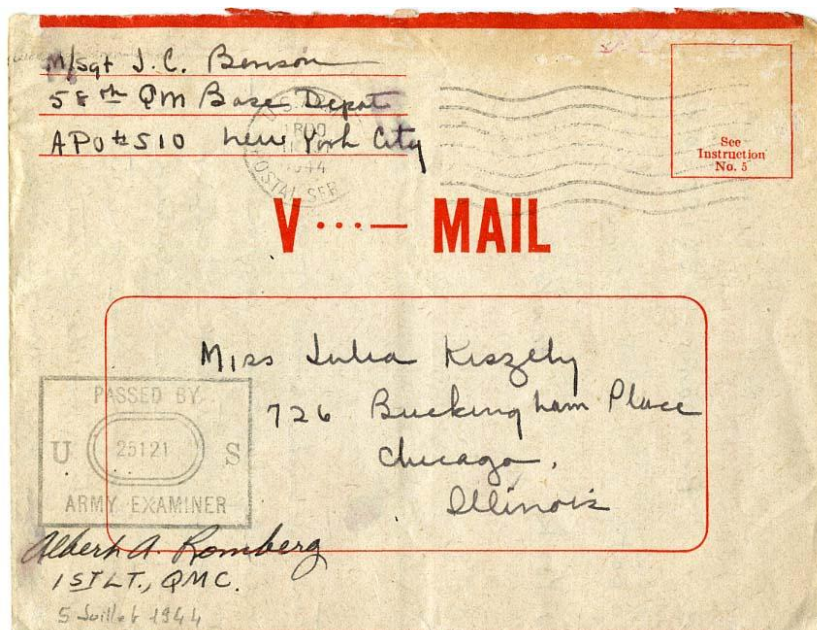 M/Sgt J.C. Benson
58th QM Base Depot
APO #510 New York City
U.S.
1944
POSTAL SER
See
Instruction
No. 5
V ···— MAIL
Miss Julia Kiszely
726 Buckingham Place
Chicago,
Illinois
PASSED BY
U 25121 S
ARMY EXAMINER
Albert A. Romberg
1ST LT., QMC.
5 Juillet 1944